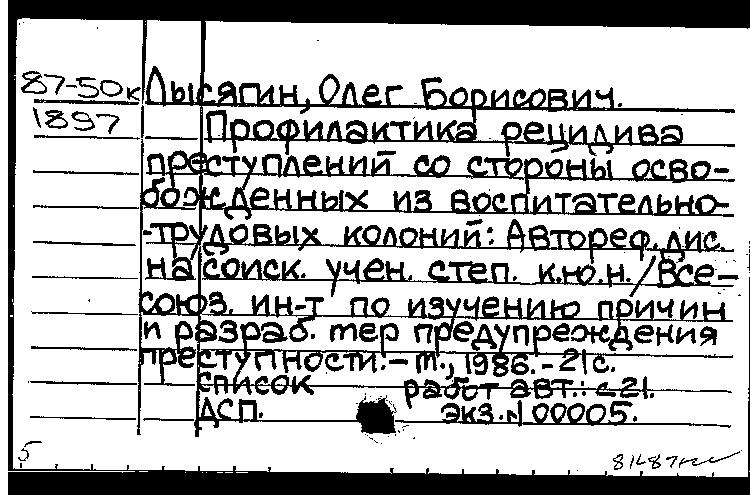 87-50к Лысягин, Олег Борисович.
1897 Профилактика рецидива
преступлений со стороны осво-
божденных из воспитательно-
-трудовых колоний: Автореф. дис.
на соиск. учен. степ. к.ю.н./Все-
союз. ин-т по изучению причин
и разраб. мер предупреждения
преступности. - М., 1986. - 21 с.
Список работ авт.: с 21.
ДСП. экз. N 00005.
5